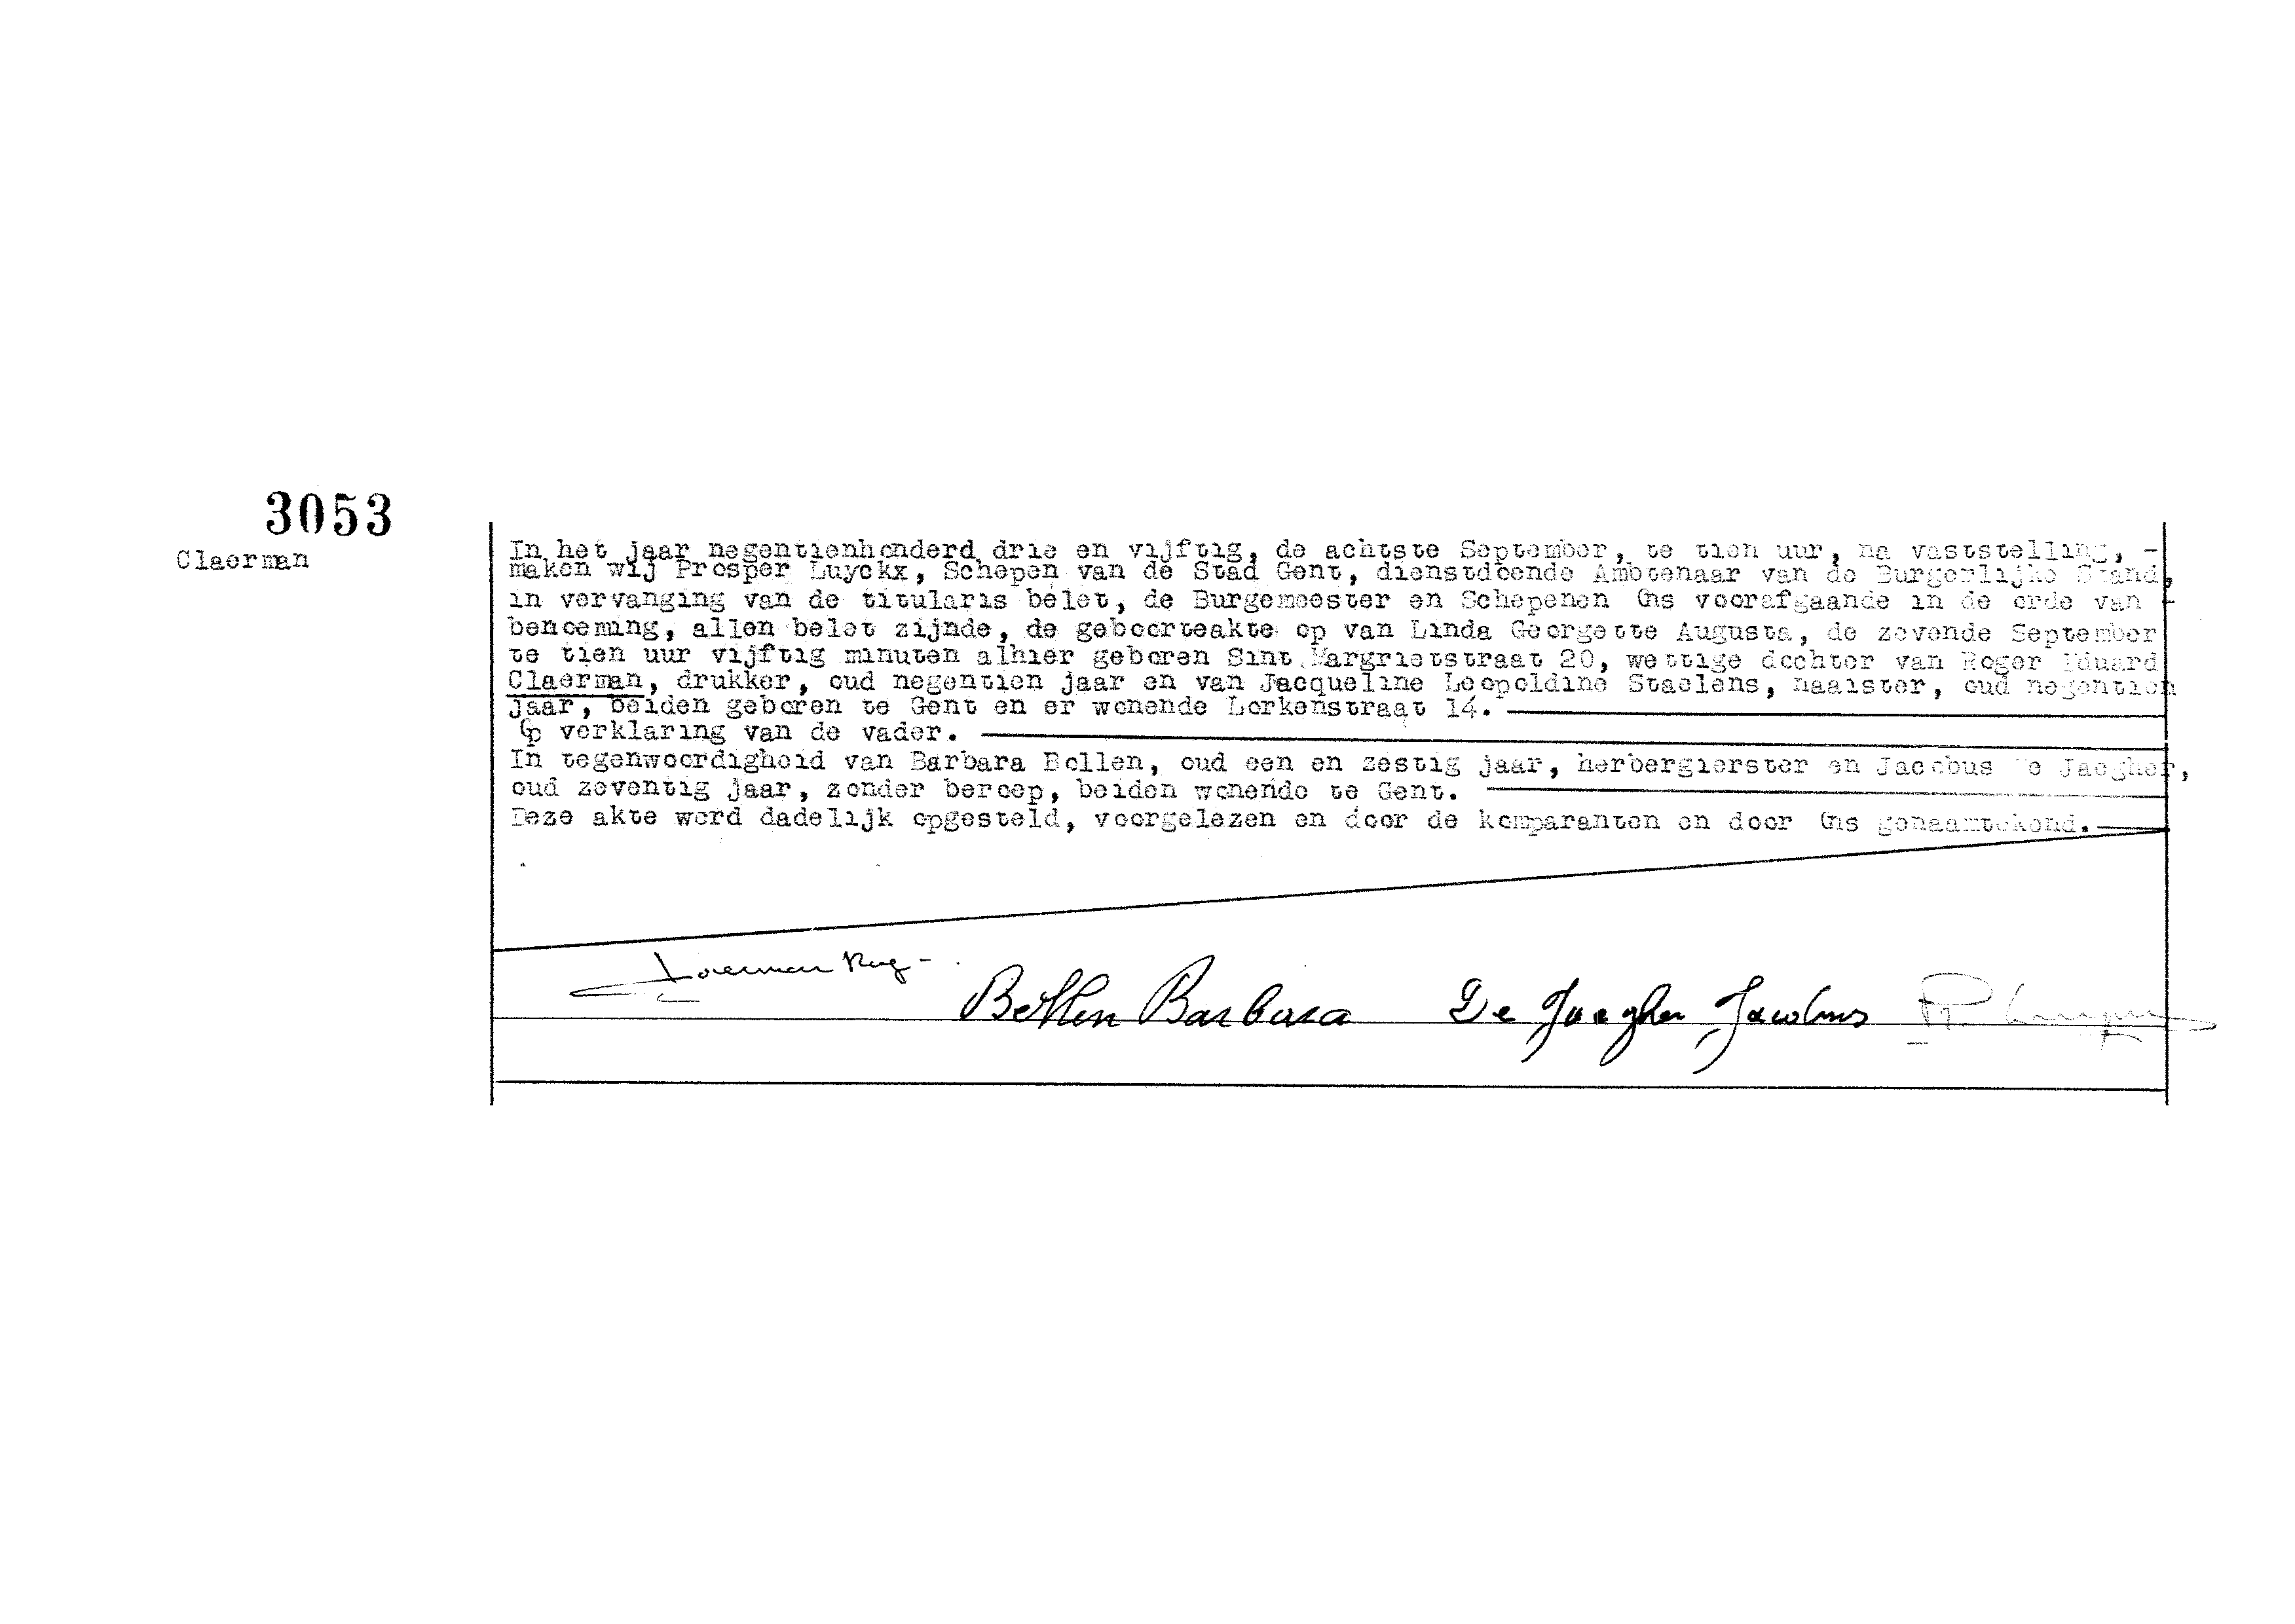 3053
Claerman
In het jaar negentienhonderd drie en vijftig, de achtste September, te tien uur, na vaststelling, -
maken wij Prosper Luyckx, Schepen van de Stad Gent, dienstdoende Ambtenaar van de Burgerlijke Stand,
in vervanging van de titularis belet, de Burgemeester en Schepenen Ons voorafgaande in de orde van -
benoeming, allen belet zijnde, de geboorteakte op van Linda Georgette Augusta, de zevende September
te tien uur vijftig minuten alhier geboren Sint Margrietstraat 20, wettige dochter van Roger Eduard
Claerman, drukker, oud negentien jaar en van Jacqueline Leopoldine Staelens, naaister, oud negentien
jaar, beiden geboren te Gent en er wonende Lorkenstraat 14.
Op verklaring van de vader.
In tegenwoordigheid van Barbara Bollen, oud een en zestig jaar, herbergierster en Jacobus De Jaegher,
oud zeventig jaar, zonder beroep, beiden wonende te Gent.
Deze akte werd dadelijk opgesteld, voorgelezen en door de komparanten en door Ons genaamtekend.
Bollen Barbara De Jaegher Jacobus